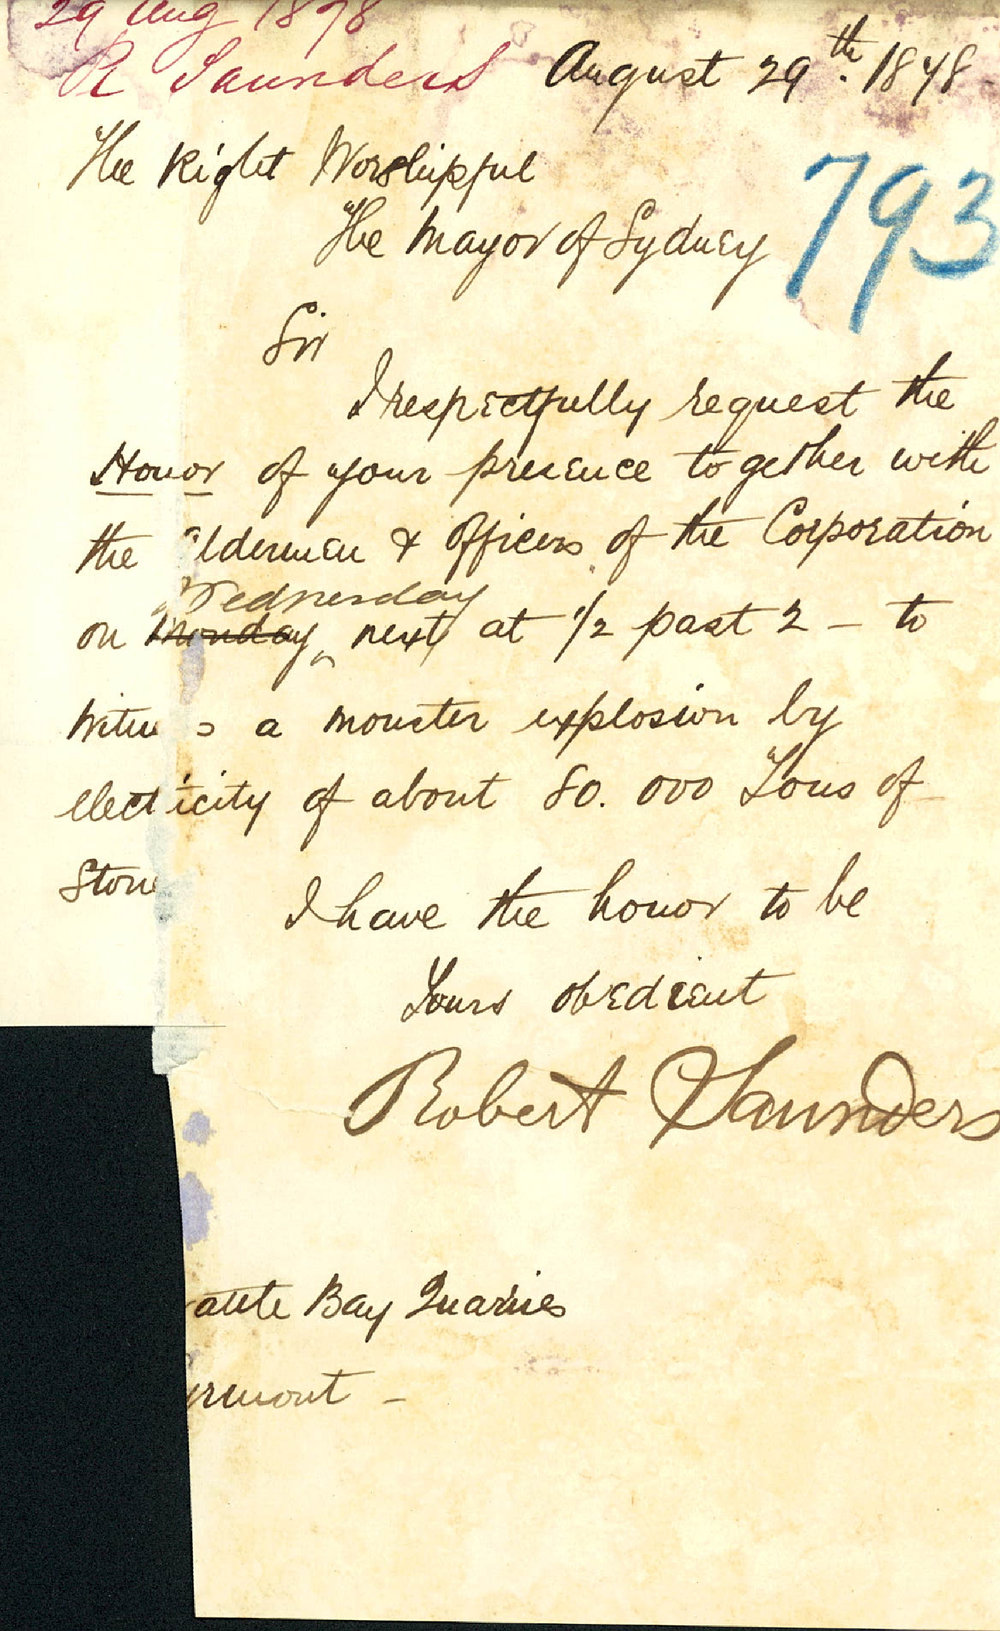 29 Aug 1878
R Saunders
August 29th. 1878
793
The Right Worshipful
The Mayor of Sydney
Sir
I respectfully request the
Honor of your presence together with
the Aldermen & Officers of the Corporation
Wednesday
on Monday, next at 1/2 past 2 – to
witness a monster explosion by
electricity of about 80.000 Tons of
Stone
I have the honor to be
Yours obedient
Robert Saunders
Bay Quarries
rmont –